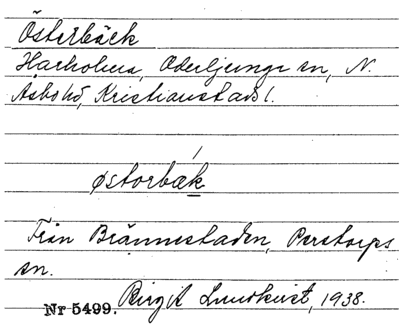 Österbäck
Harholma, Oderljunga sn, N.
Åsbo hd, Kristianstads l.
østorbæk
Från Brännestaden, Perstorps
sn.
Nr 5499. Birgit Lundkvist, 1938.